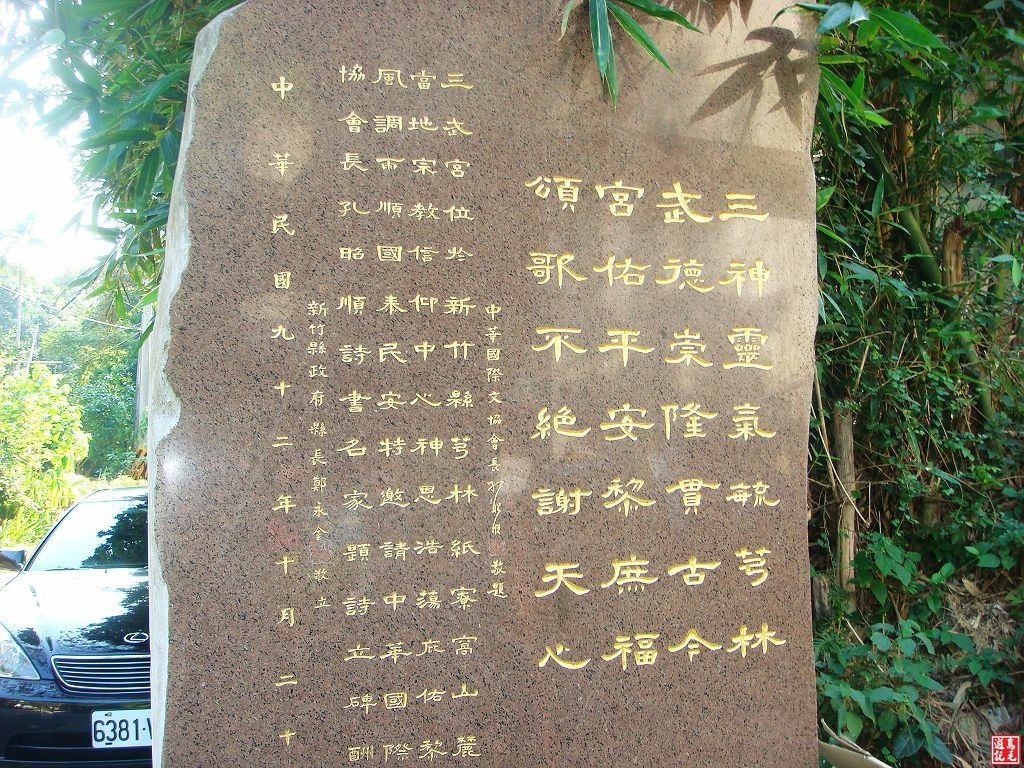 三神靈氣毓芎林
武德崇隆貫古今
宮佑平安黎庶福
頌歌不絕謝天心
中華國際文協會長孔昭順敬題
三武宮位於新竹縣芎林紙寮窩山麓
當地宗教信仰中心神恩浩蕩庇佑黎
風調雨順國泰民安特邀請中華國際
協會長孔昭順詩書名家題詩立碑酬
新竹縣政府縣長鄭永金敬立
中華民國九十二年十月二十
6381